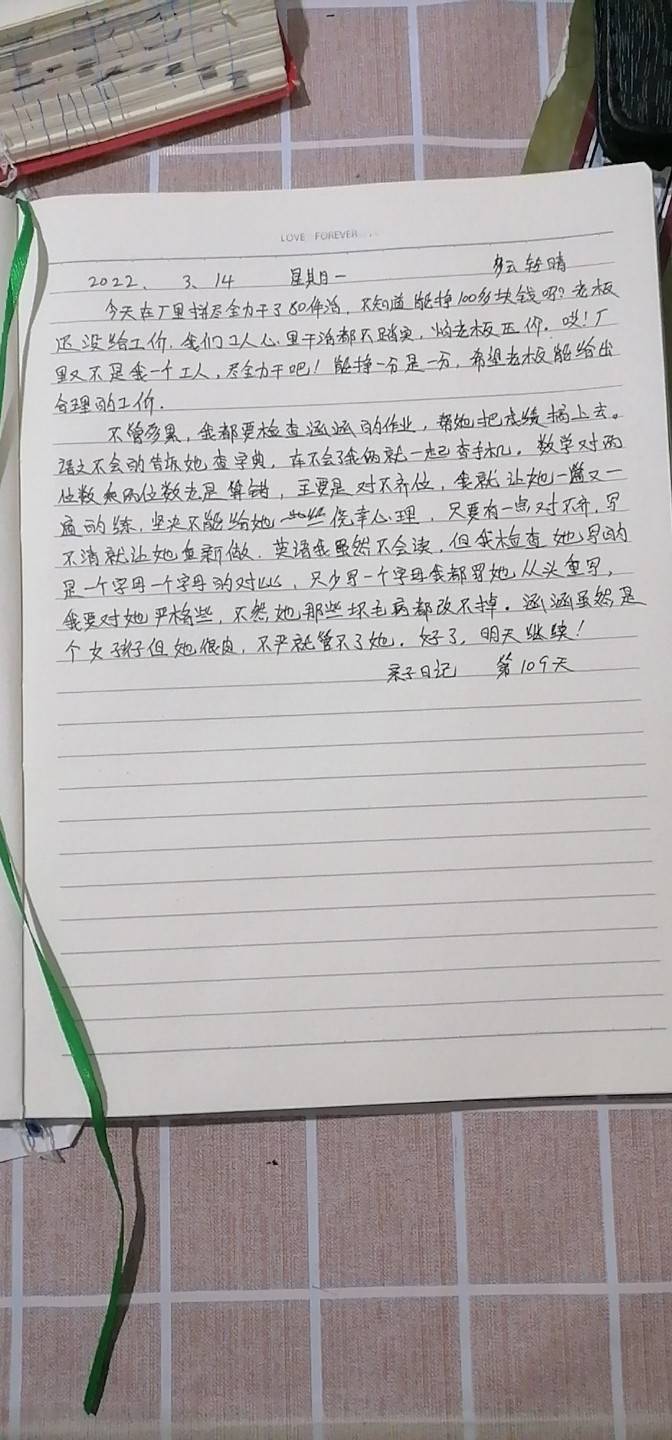 LOVE FOREVER...
2022. 3. 14 星期一 多云转晴
今天在厂里拼尽全力干了80件活，不知道能挣100多块钱吗？老板
还没给工价，我们工人心里干活都不踏实，怕老板压价。哎！厂
里又不是我一个工人，尽全力干吧！能挣一分是一分，希望老板能给出
合理的工价.
不管多累，我都要检查涵涵的作业，帮她把成绩搞上去。
语文不会的告诉她查字典，在不会了我俩就一起查手机。数学对两
位数乘两位数老是算错，主要是对不齐位，我就让她一篇又一
篇的练，坚决不能给她一些侥幸心理，只要有一点对不齐，写
不清就让她重新做.英语我虽然不会读，但我检查她写的
是一个字母一个字母的对比，只少写一个字母我都罗她从头重写，
我要对她严格些，不然她那些坏毛病都改不掉。涵涵虽然是
个女孩子但她很皮，不严就管不了她。好了，明天继续！
亲子日记 第109天